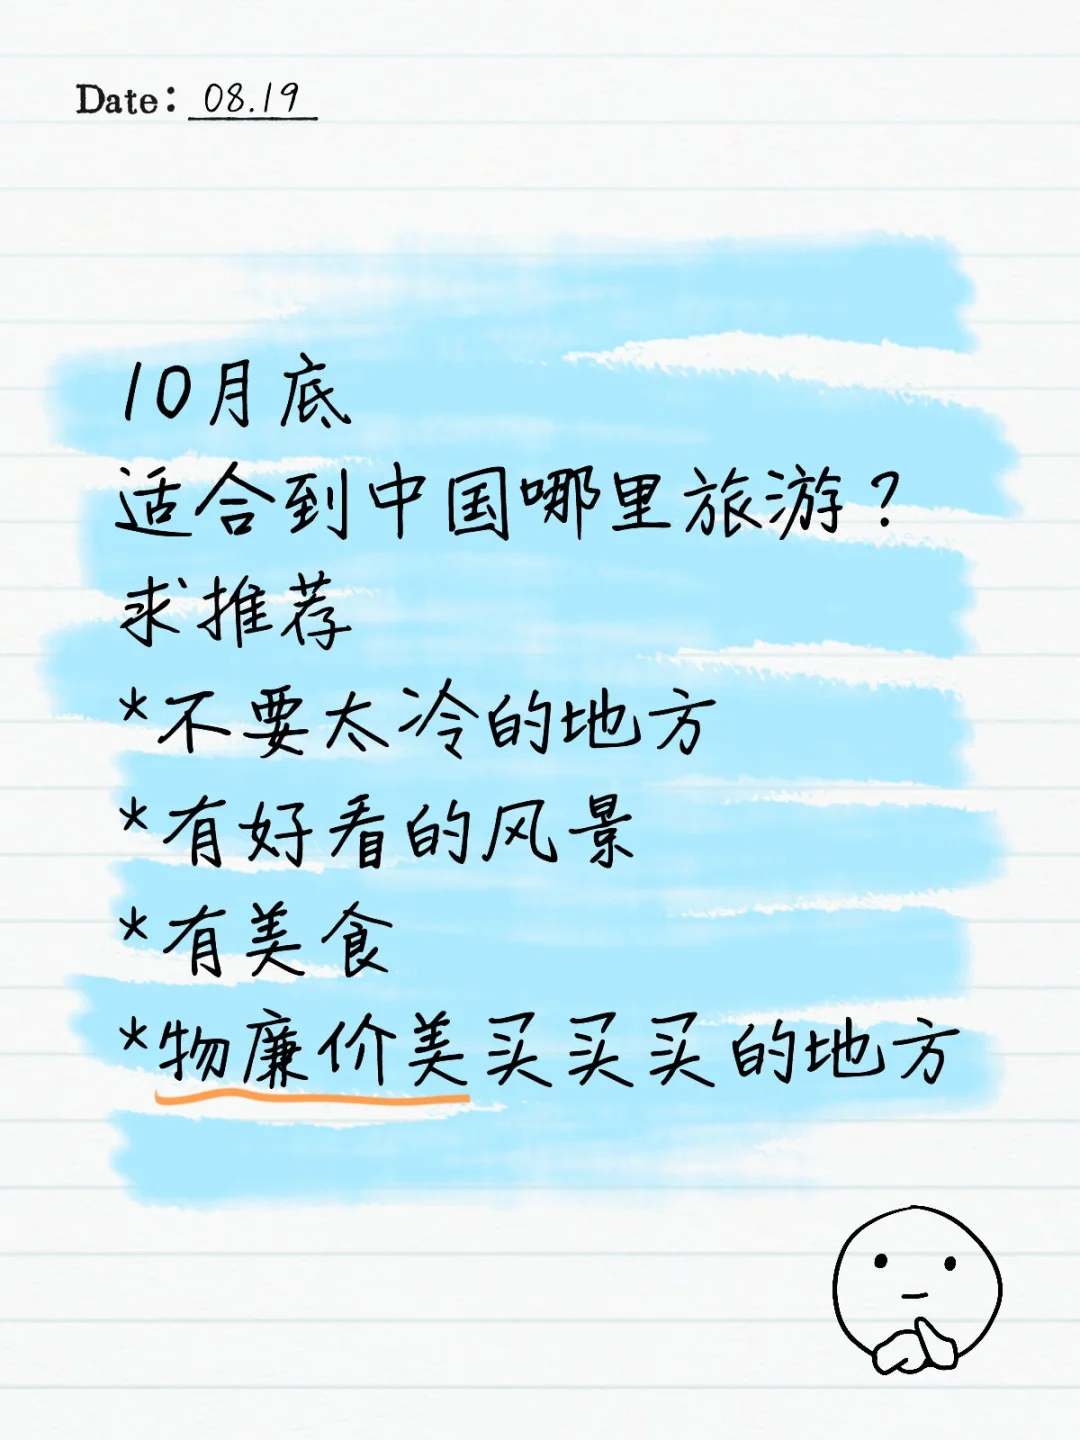 Date: 08.19
10月底
适合到中国哪里旅游？
求推荐
*不要太冷的地方
*有好看的风景
*有美食
*物廉价美买买买的地方